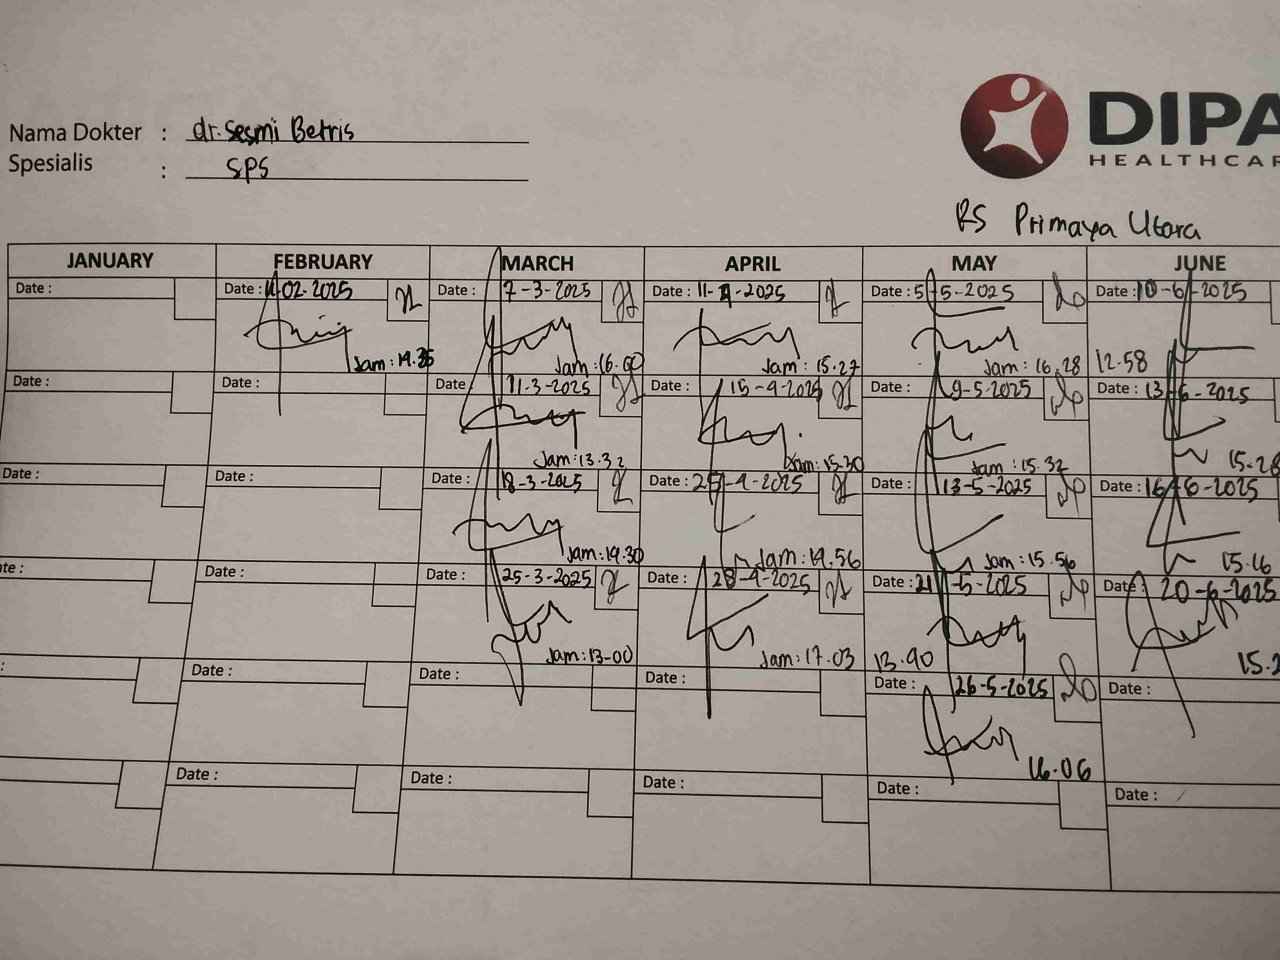 Nama Dokter : dr. Sesmi Betris
Spesialis : SPS
DIPA
HEALTHCAR
RS Primaya Utara
JANUARY FEBRUARY MARCH APRIL MAY JUNE
Date : Date : 11-02-2025 Date : 7-3-2025 Date : 11-4-2025 Date : 5-5-2025 Date : 10-6-2025
Jam : 14.35 Jam : 16.00 Jam : 15.27 Jam : 16.28 12.58
Date : Date : Date 11-3-2025 Date : 15-4-2025 Date : 9-5-2025 Date : 13-6-2025
Jam : 13.32 Jam : 15.30 Jam : 15.32 15.28
Date : Date : Date : 18-3-2025 Date : -4-2025 Date : 13-5-2025 Date : 16-6-2025
Jam : 14.30 Jam : 14.56 Jam : 15.56 15.16
te : Date : Date : 25-3-2025 Date : 28-4-2025 Date : 21-5-2025 Date : 20-6-2025
Jam : 13-00 Jam : 17.03 13.40 15.2
: Date : Date : Date : Date : 26-5-2025 Date :
16.06
Date : Date : Date : Date : Date :